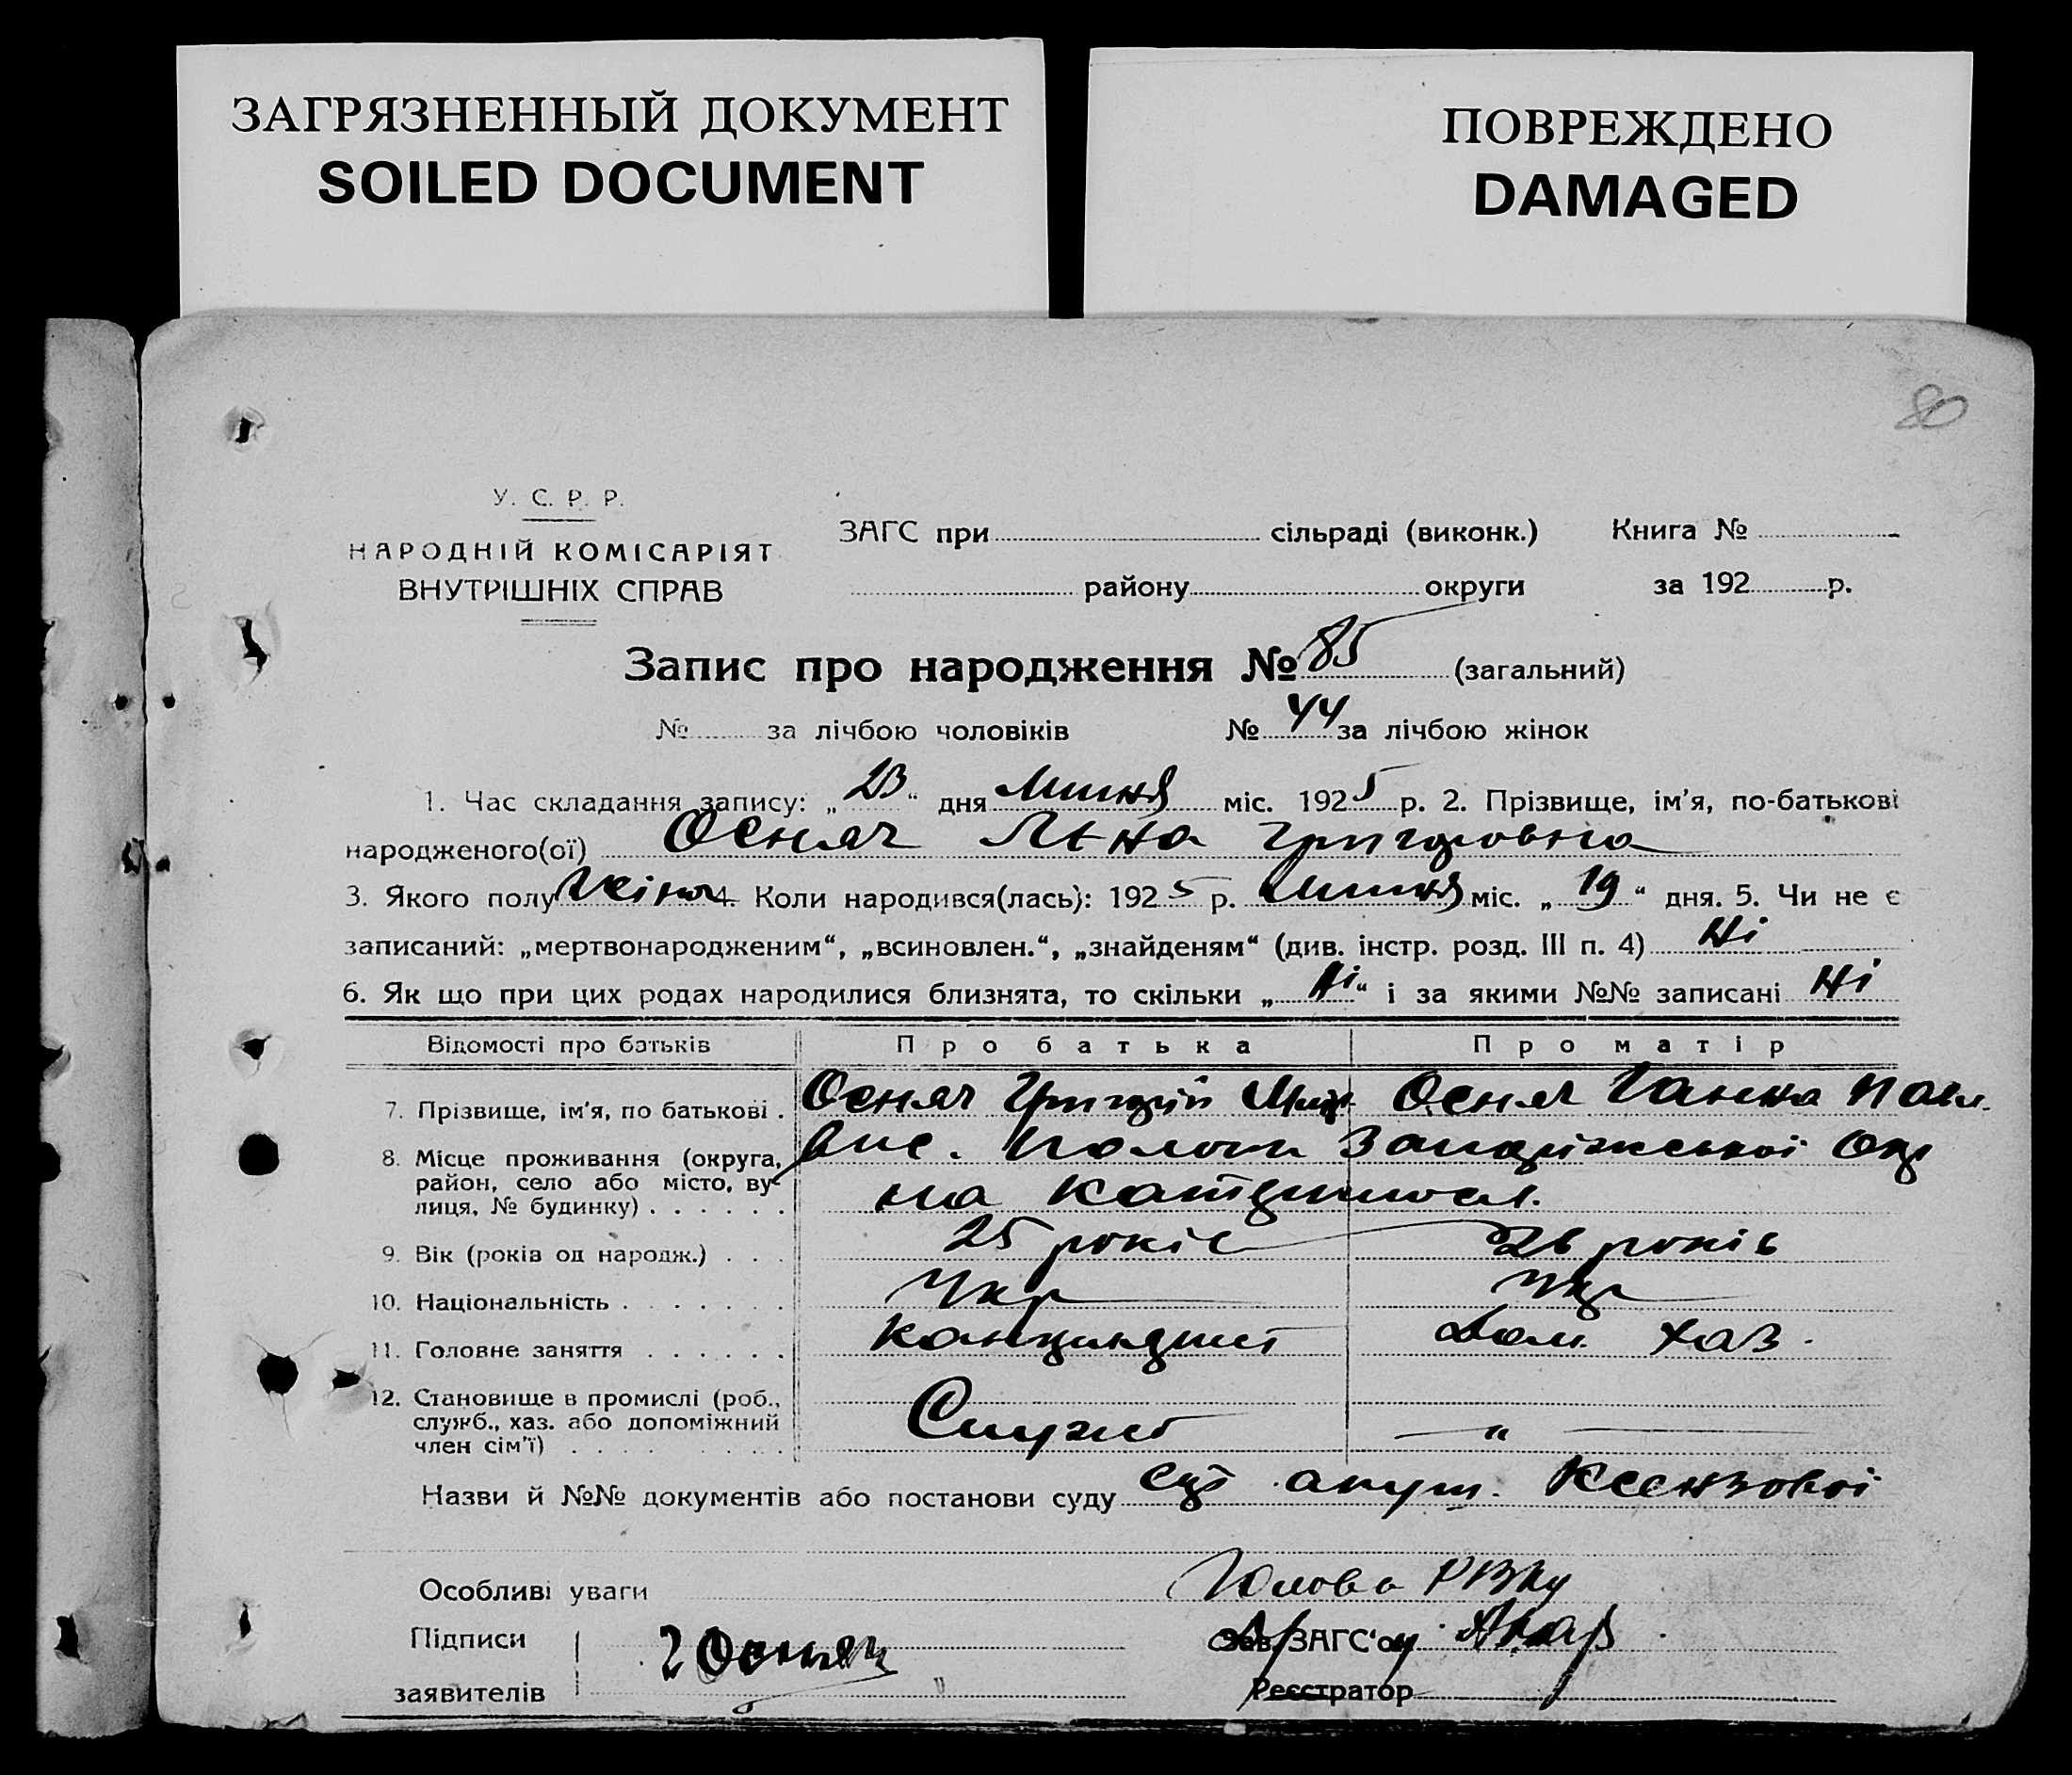 ЗАГРЯЗНЕННЫЙ ДОКУМЕНТ
SOILED DOCUMENT
ПОВРЕЖДЕНО
DAMAGED
80
У. С. Р. Р.
НАРОДНІЙ КОМІСАРІЯТ
ВНУТРІШНІХ СПРАВ
ЗАГС при сільраді (виконк.) Книга №
району округи за 192 р.
Запис про народження № 85 (загальний)
№ за лічбою чоловіків № 44 за лічбою жінок
1. Час складання запису: „23“ дня Липня міс. 1925 р. 2. Прізвище, ім'я, по-батькові
народженого(ої) Осняч Григоровна
3. Якого полу Жіноч 4. Коли народився(лась): 1925 р. Липня міс. „19“ дня. 5. Чи не є
записаний: „мертвонародженим“, „всиновлен.“, „знайденям“ (див. інстр. розд. III п. 4) Ні
6. Як що при цих родах народилися близнята, то скільки „Ні“ і за якими №№ записані Ні
Відомості про батьків Про батька Про матір
7. Прізвище, ім'я, по батькові . Осняч Григорій Осняч Ганна Павл.
8. Місце проживання (округа, Запоріжської Окр
район, село або місто, ву-
лиця, № будинку) . . . . . . на
9. Вік (років од народж.) . . . 25 років 26 років
10. Національність . . . . . . . Укр Укр
11. Головне заняття . . . . . . Дом. хаз.
12. Становище в промислі (роб.,
служб., хаз. або допоміжний Служб "
член сім'ї) . . . . . . . . .
Назви й №№ документів або постанови суду акуш.
Особливі уваги Голова РВКу
Підписи Г Осняч Зав. ЗАГС'ом
заявителів Реєстратор